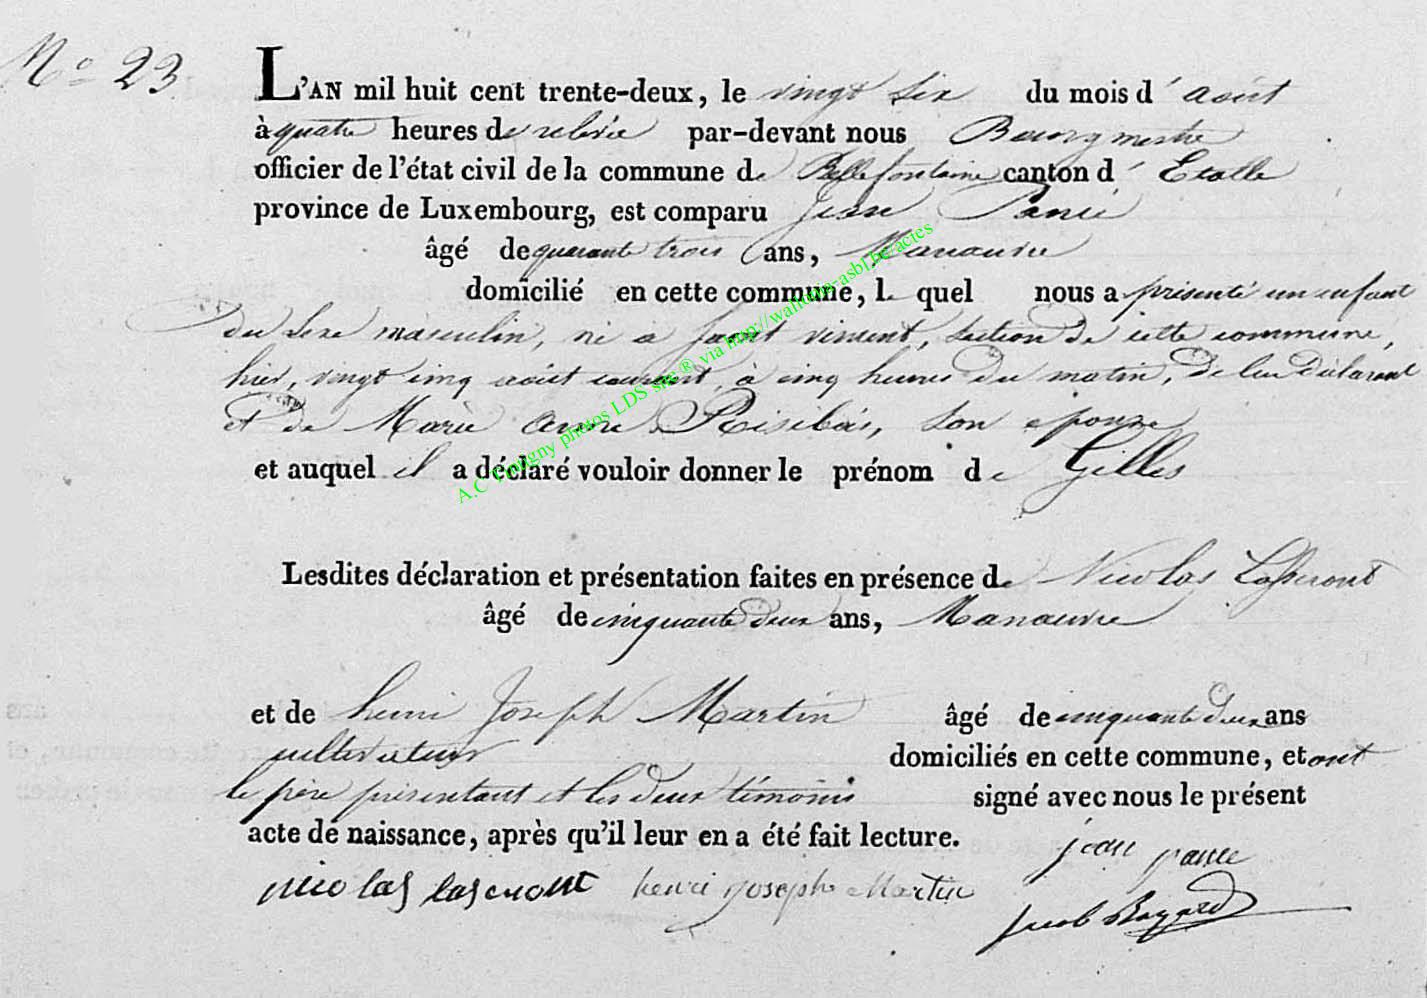 No 23
L'AN mil huit cent trente-deux, le vingt six du mois d' août
à quatre heures de relevée par-devant nous Bourgmestre
officier de l'état civil de la commune de Bellefontaine canton d' Etalle
province de Luxembourg, est comparu Jean Panié
âgé de quarante trois ans, Manœuvre
domicilié en cette commune, le quel nous a présenté un enfant
du sexe masculin, né a saint vincent, section de cette commune,
hier, vingt cinq août courant, à cinq heures du matin, de lui déclarant
et de Marie Anne Risibois, son epouse
et auquel il a déclaré vouloir donner le prénom de Gilles
Lesdites déclaration et présentation faites en présence de Nicolas
âgé de cinquante deux ans, Manœuvre
et de henri Joseph Martin âgé de cinquante deux ans
cultivateur domiciliés en cette commune, et ont
le père présentant et les deux témoins signé avec nous le présent
acte de naissance, après qu'il leur en a été fait lecture.
jean panie
nicolas lascront henri joseph Martin
Jacob Bayard
A.C Tintigny photos LDS site ® via http://wallonia-asbl.be/actes